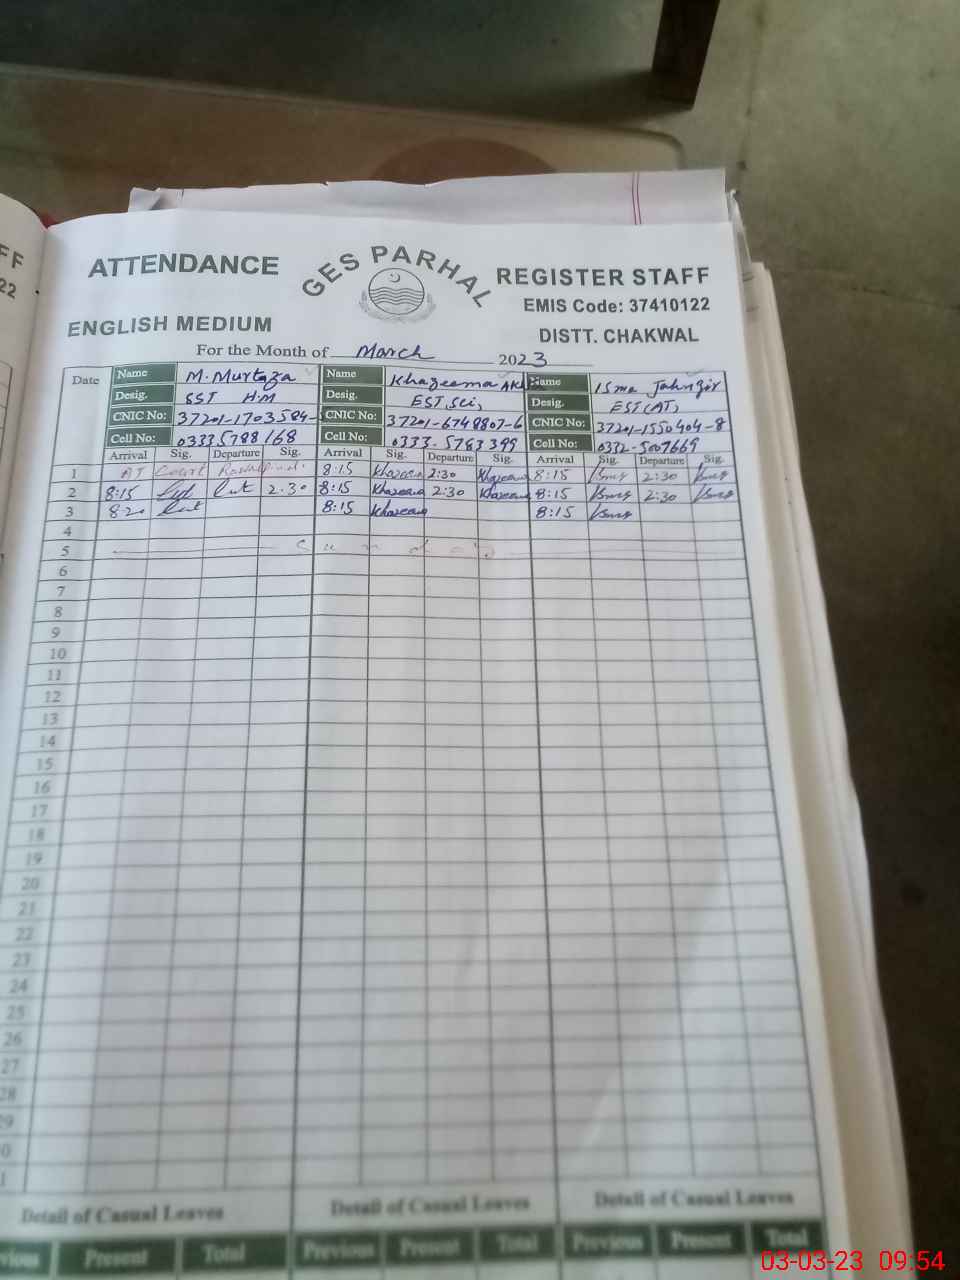 FF
22
ATTENDANCE
GES PARHAL
REGISTER STAFF
EMIS Code: 37410122
ENGLISH MEDIUM
DISTT. CHAKWAL
For the Month of March 2023
Date Name M. Murtaza Name Khazeema Name Isma Jahngir
Desig. SST H.M Desig. EST, Sci, Desig. EST(AT)
CNIC No: 37201-1703584- CNIC No: 37201-6748807-6 CNIC No: 37201-1550404-8
Cell No: 0333 5788168 Cell No: 0333-5783399 Cell No: 0332-5007669
Arrival Sig. Departure Sig. Arrival Sig. Departure Sig. Arrival Sig. Departure Sig.
1 AT Court 8:15 Khazeema 2:30 Khazeema 8:15 2:30
2 8:15 2:30 8:15 Khazeema 2:30 Khazeema 8:15 2:30
3 8:20 8:15 Khazeema 8:15
4
5 Sunday
6
7
8
9
10
11
12
13
14
15
16
17
18
19
20
21
22
23
24
25
26
27
28
29
0
1
Detail of Casual Leaves Detail of Casual Leaves Detail of Casual Leaves
vious Present Total Previous Present Total Previous Present Total
03-03-23 09:54